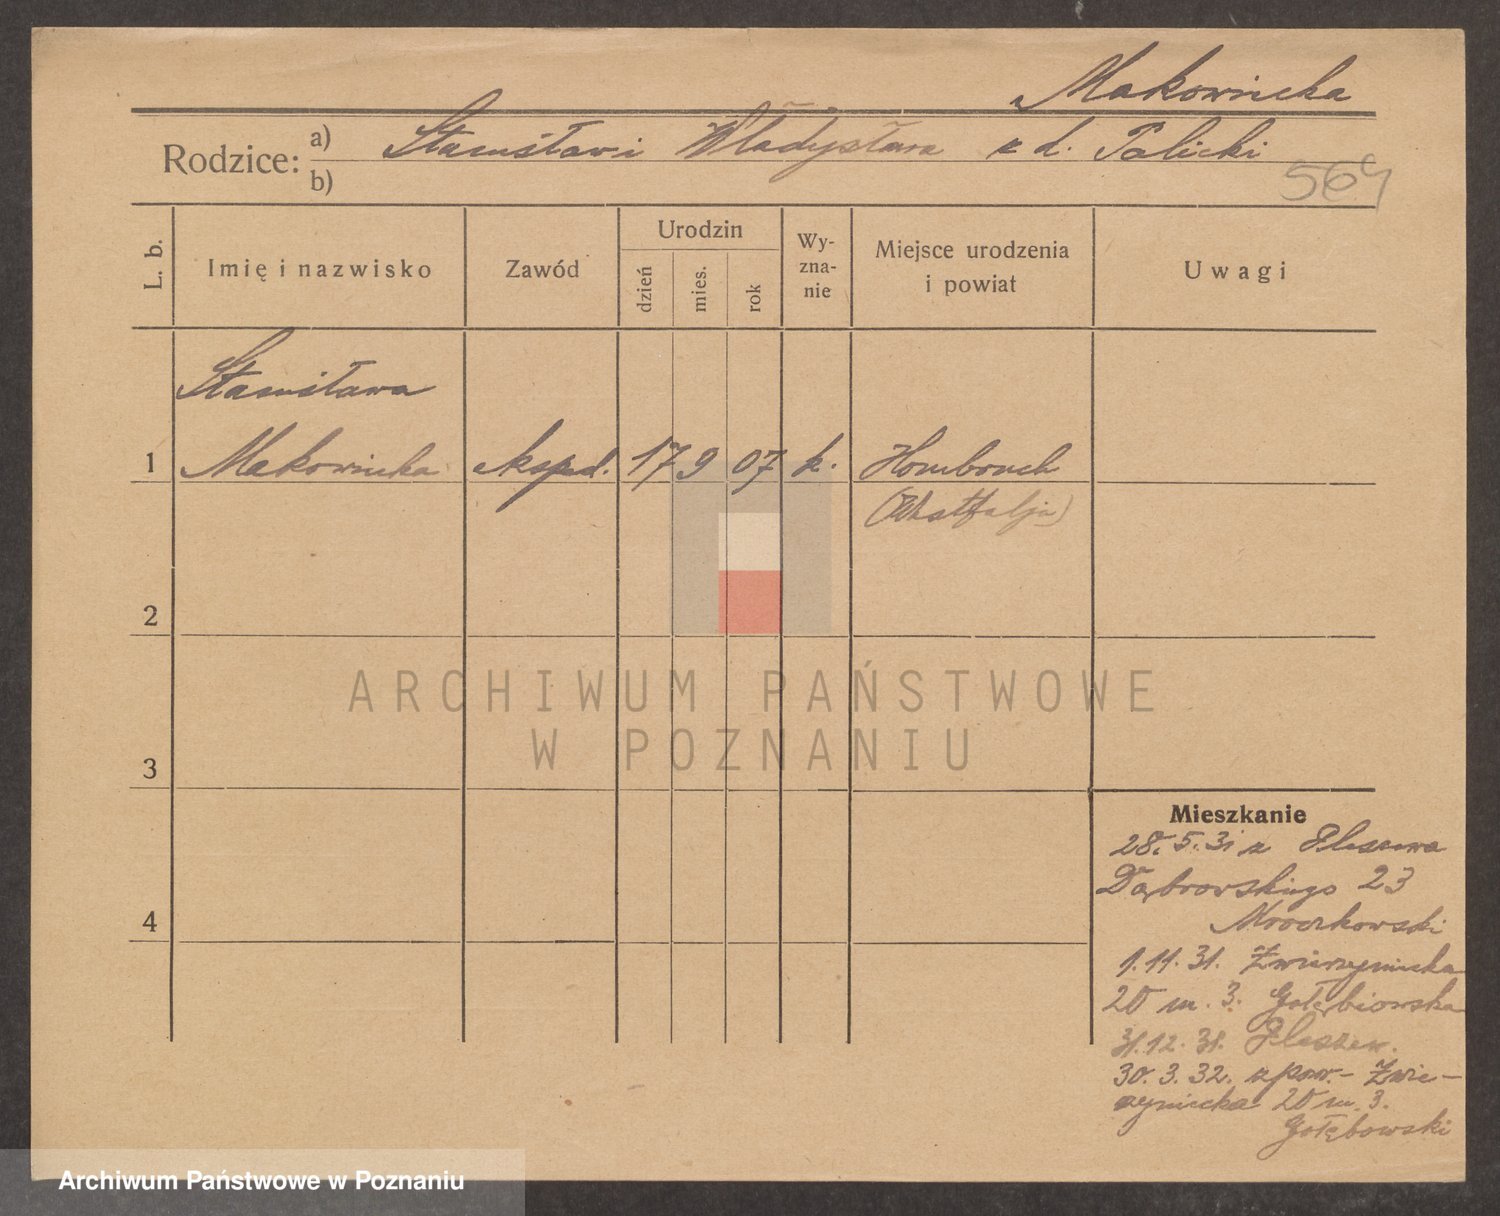 Makowiecka
Rodzice: a) Stanisław i Władysława z d. Palicki
b)
569
L. b.
Imię i nazwisko
Zawód
Urodzin
dzień
mies.
rok
Wy-
zna-
nie
Miejsce urodzenia
i powiat
Uwagi
Stanisława
1 Makowiecka ekspd. 17 9 07 k. Hombruch
(Westfalja)
2
ARCHIWUM PAŃSTWOWE
W POZNANIU
3
Mieszkanie
28. 5. 31 z Pleszewa
Dąbrowskiego 23
Mroczkowski
4
1. 11. 31. Zwierzyniecka
20 m. 3. Gołębiowska
31. 12. 31. Pleszew.
30. 3. 32. z pow. - Zwie-
rzyniecka 20 m. 3.
Gołębowski
Archiwum Państwowe w Poznaniu